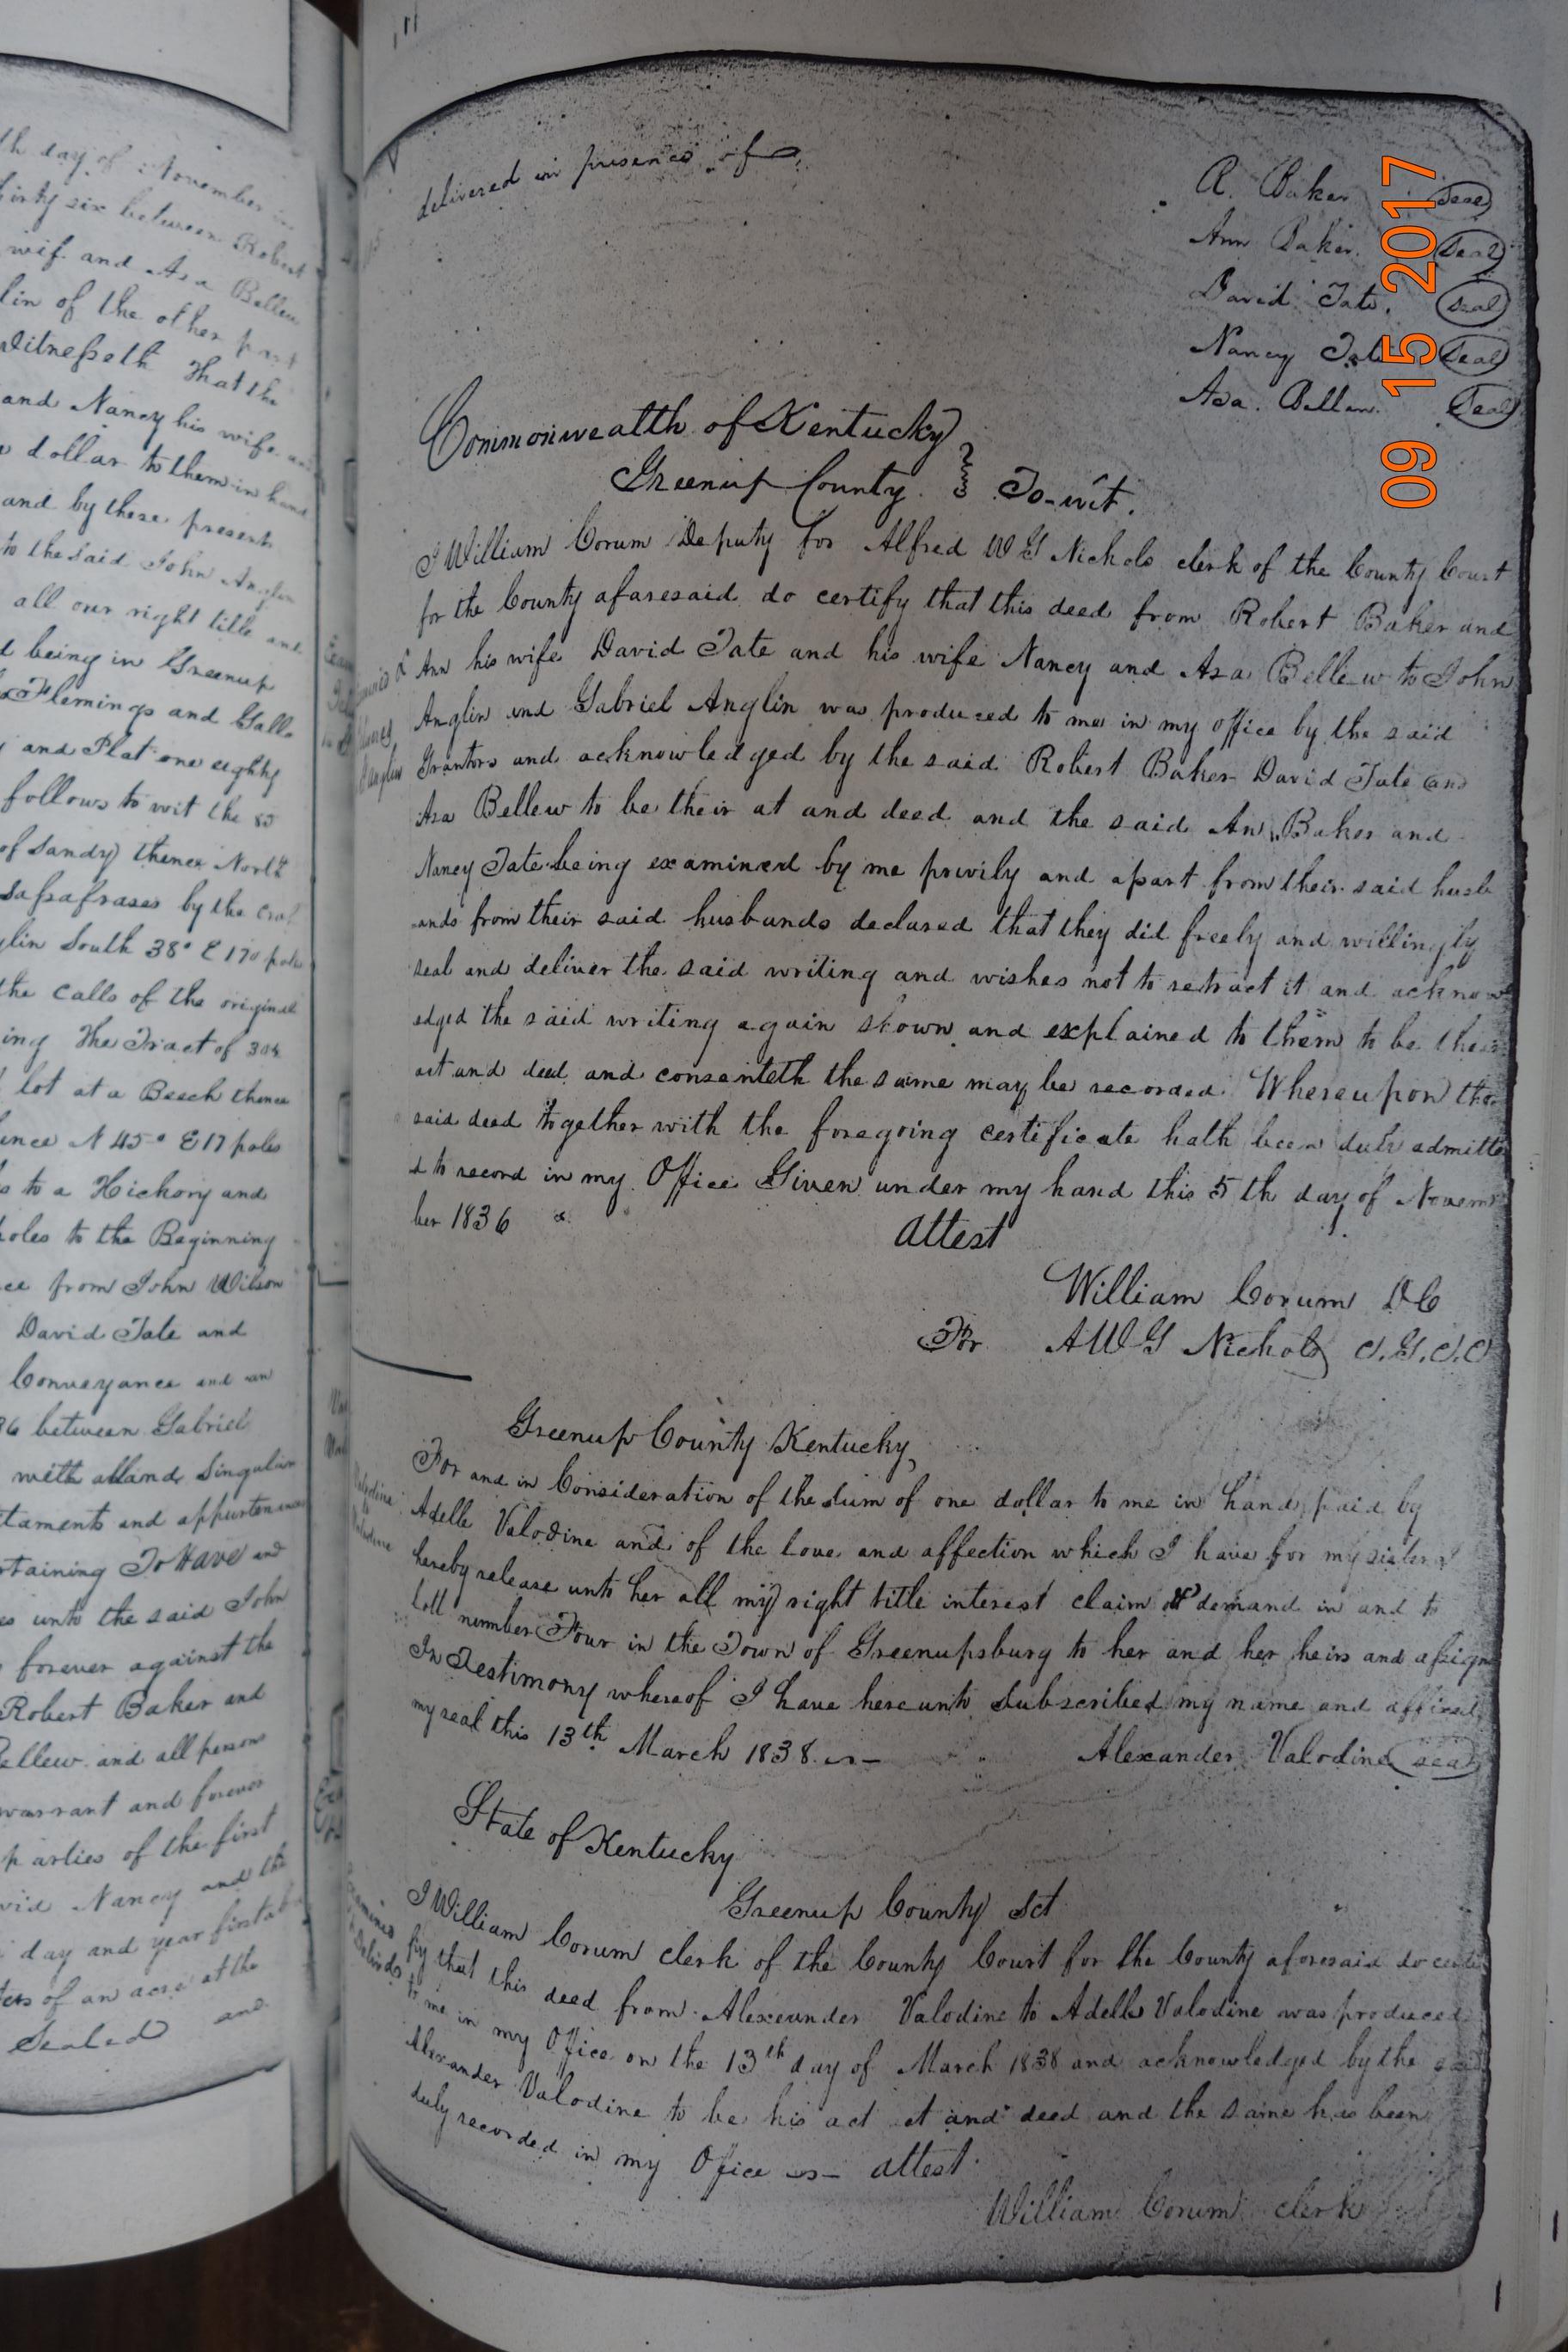 th day of November in
hirty six between Robert
wif and Asa Bellew
lin of the other part
Witnesseth That the
and Nancy his wife
dollar to them in hand
and by these presents
to the said John Anglin
all our right title and
d being in Greenup
Flemings and Galls
and Plat one eighty
follows to wit the
of Sandy thence North
sassafrases by the
lin South 38° E 170 pole
the calls of the original
ing The Tract of 304
lot at a Beech thence
ence N 45° E 17 poles
to a Hickory and
oles to the Beginning
ce from John Wilson
David Tate and
Conveyance and
36 between Gabriel
with all and Singular
taments and appurtenances
rtaining To Have and
es unto the said John
forever against the
Robert Baker and
Bellew and all persons
warrant and forever
parties of the first
vid Nancy and the
day and year first
ters of an acre at the
Sealed and
delivered in presence of
A. Baker seal
Ann Baker. seal
David Tate. seal
Nancy Tate seal
Asa. Bellew. seal
09 15 2017
Commonwealth of Kentucky
Greenup County. To-wit.
I William Corum Deputy for Alfred W G Nichols clerk of the County Court
for the County afaresaid do certify that this deed from Robert Baker and
Ann his wife David Tate and his wife Nancy and Asa Bellew to John
Anglin and Gabriel Anglin was produced to me in my office by the said
Grantors and acknowledged by the said Robert Baker David Tate and
Asa Bellew to be their at and deed and the said An Baker and
Nancy Tate being examined by me privily and apart from their said husb
ands from their said husbands declared that they did freely and willingly
seal and deliver the said writing and wishes not to retract it and acknow
edged the said writing again shown and explained to them to be their
act and deed and consenteth the same may be recorded Whereupon the
said deed together with the foregoing certificate hath been duly admitte
d to record in my Office Given under my hand this 5th day of Novem
ber 1836
attest
William Corum D C
For A W G Nichols C.G.C.C
Greenup County Kentucky,
For and in Consideration of the Sum of one dollar to me in hand paid by
Adelle Valodine and of the love and affection which I have for my sister I
hereby release unto her all my right title interest claim or demand in and to
lott number Four in the Town of Greenupsburg to her and her heirs and assigns
In Testimony whereof I have hereunto Subscribed my name and affixed
my seal this 13th March 1838.
Alexander Valodine seal
State of Kentucky
Greenup County Sct
I William Corum clerk of the County Court for the County aforesaid do certi
fy that this deed from Alexeander Valodine to Adelle Valodine was produced
to me in my Office on the 13th day of March 1838 and acknowledged by the said
Alexander Valodine to be his act at and deed and the same has been
duly recorded in my Office attest
William Corum clerk